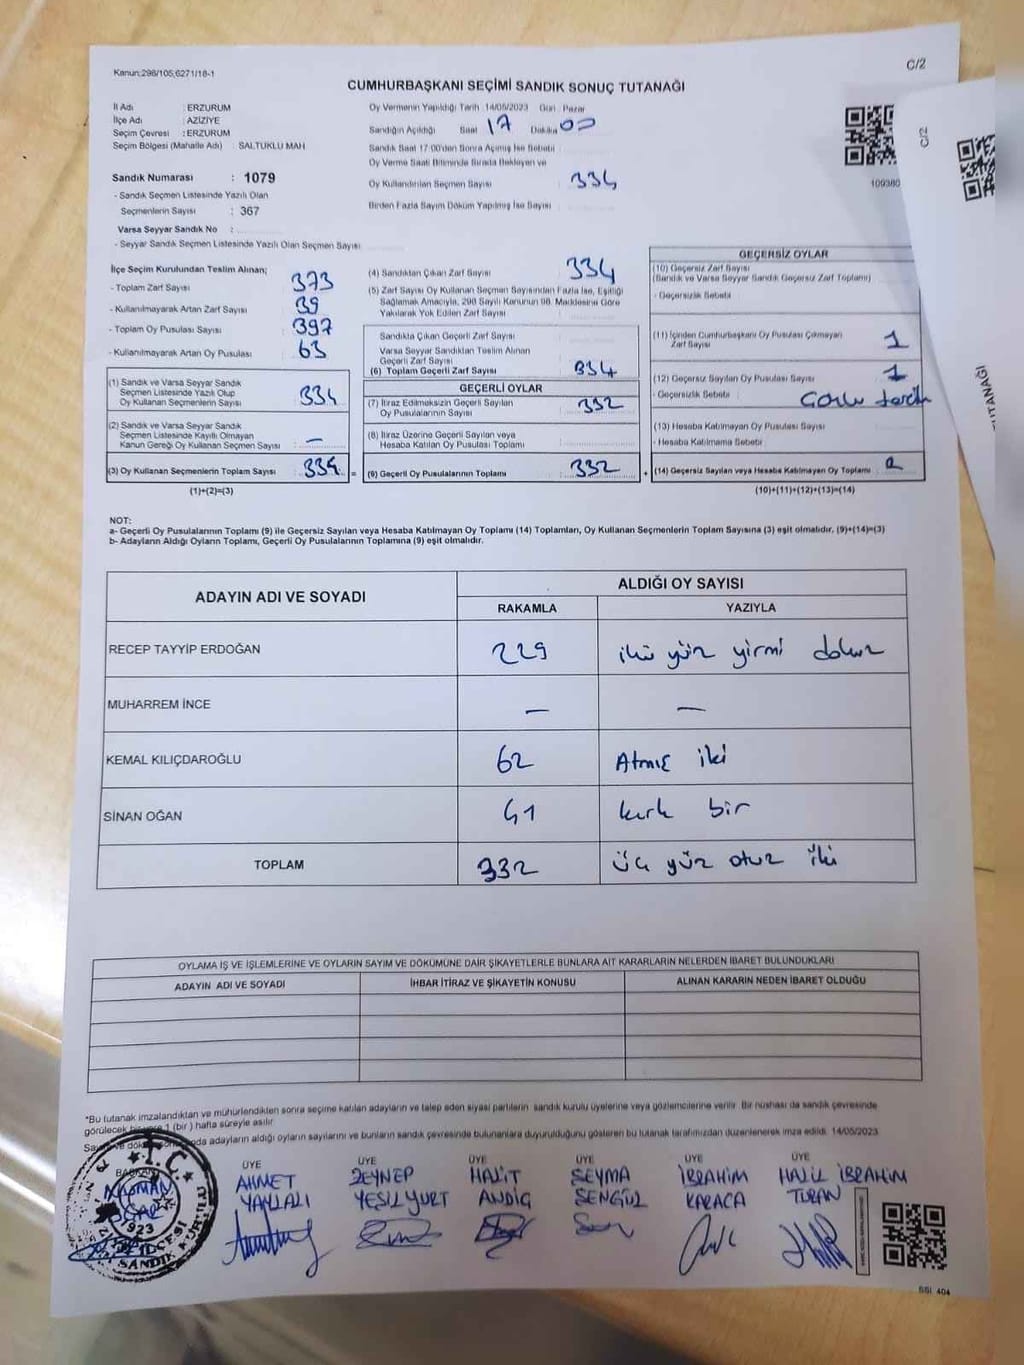 Kanun:298/105,6271/18-1
C/2
CUMHURBAŞKANI SEÇİMİ SANDIK SONUÇ TUTANAĞI
İl Adı : ERZURUM
İlçe Adı : AZİZİYE
Seçim Çevresi : ERZURUM
Seçim Bölgesi (Mahalle Adı) SALTUKLU MAH
Sandık Numarası : 1079
- Sandık Seçmen Listesinde Yazılı Olan
Seçmenlerin Sayısı : 367
Varsa Seyyar Sandık No :
- Seyyar Sandık Seçmen Listesinde Yazılı Olan Seçmen Sayısı
Oy Vermenin Yapıldığı Tarih 14/05/2023 Gün Pazar
Sandığın Açıldığı Saat 17 Dakika 00
Sandık Saat 17:00'den Sonra Açımış İse Sebebi
Oy Verme Saati Bitiminde Sırada Bekleyen ve
Oy Kullandırılan Seçmen Sayısı 334
Birden Fazla Sayım Döküm Yapılmış İse Sayısı
109380
C/2
TUTANAĞI
İlçe Seçim Kurulundan Teslim Alınan;
- Toplam Zarf Sayısı 373
- Kullanılmayarak Artan Zarf Sayısı 39
- Toplam Oy Pusulası Sayısı 397
- Kullanılmayarak Artan Oy Pusulası 63
(1) Sandık ve Varsa Seyyar Sandık
Seçmen Listesinde Yazılı Olup
Oy Kullanan Seçmenlerin Sayısı 334
(2) Sandık ve Varsa Seyyar Sandık
Seçmen Listesinde Kayıtlı Olmayan
Kanun Gereği Oy Kullanan Seçmen Sayısı –
(3) Oy Kullanan Seçmenlerin Toplam Sayısı 334 =
(1)+(2)=(3)
(4) Sandıktan Çıkan Zarf Sayısı 334
(5) Zarf Sayısı Oy Kullanan Seçmen Sayısından Fazla İse, Eşitliği
Sağlamak Amacıyla, 298 Sayılı Kanunun 98. Maddesine Göre
Yakılarak Yok Edilen Zarf Sayısı
Sandıkta Çıkan Geçerli Zarf Sayısı
Varsa Seyyar Sandıktan Teslim Alınan
Geçerli Zarf Sayısı
(6) Toplam Geçerli Zarf Sayısı 334
GEÇERLİ OYLAR
(7) İtiraz Edilmeksizin Geçerli Sayılan
Oy Pusulalarının Sayısı 332
(8) İtiraz Üzerine Geçerli Sayılan veya
Hesaba Katılan Oy Pusulası Sayısı
(9) Geçerli Oy Pusulalarının Toplamı 332 +
GEÇERSİZ OYLAR
(10) Geçersiz Zarf Sayısı
(Sandık ve Varsa Seyyar Sandık Geçersiz Zarf Toplamı)
- Geçersizlik Sebebi
(11) İçinden Cumhurbaşkanı Oy Pusulası Çıkmayan
Zarf Sayısı 1
(12) Geçersiz Sayılan Oy Pusulası Sayısı 1
- Geçersizlik Sebebi Çoklu tercih
(13) Hesaba Katılmayan Oy Pusulası Sayısı
- Hesaba Katılmama Sebebi
(14) Geçersiz Sayılan veya Hesaba Katılmayan Oy Toplamı 2
(10)+(11)+(12)+(13)=(14)
NOT:
a- Geçerli Oy Pusulalarının Toplamı (9) ile Geçersiz Sayılan veya Hesaba Katılmayan Oy Toplamı (14) Toplamları, Oy Kullanan Seçmenlerin Toplam Sayısına (3) eşit olmalıdır. (9)+(14)=(3)
b- Adayların Aldığı Oyların Toplamı, Geçerli Oy Pusulalarının Toplamına (9) eşit olmalıdır.
ADAYIN ADI VE SOYADI ALDIĞI OY SAYISI
RAKAMLA YAZIYLA
RECEP TAYYİP ERDOĞAN 229 iki yüz yirmi dokuz
MUHARREM İNCE – –
KEMAL KILIÇDAROĞLU 62 Atmış iki
SİNAN OĞAN 41 kırk bir
TOPLAM 332 üç yüz otuz iki
OYLAMA İŞ VE İŞLEMLERİNE VE OYLARIN SAYIM VE DÖKÜMÜNE DAİR ŞİKAYETLERLE BUNLARA AİT KARARLARIN NELERDEN İBARET BULUNDUKLARI
ADAYIN ADI VE SOYADI İHBAR İTİRAZ VE ŞİKAYETİN KONUSU ALINAN KARARIN NEDEN İBARET OLDUĞU
*Bu tutanak imzalandıktan ve mühürlendikten sonra seçime katılan adayların ve talep eden siyasi partilerin sandık kurulu üyelerine veya gözlemcilerine verilir. Bir nüshası da sandık çevresinde
görülecek bir yere 1 (bir) hafta süreyle asılır.
adayların aldığı oyların sayılarını ve bunların sandık çevresinde bulunanlara duyurulduğunu gösteren bu tutanak tarafımızdan düzenlenerek imza edildi. 14/05/2023
ÜYE ÜYE ÜYE ÜYE ÜYE ÜYE
AHMET ZEYNEP HALİT ŞEYMA İBRAHİM HALİL İBRAHİM
YAYLALI YEŞİLYURT ANDİG ŞENGÜL KARACA TURAN
T.C.
1923
SANDIK KURULU
SSI 404